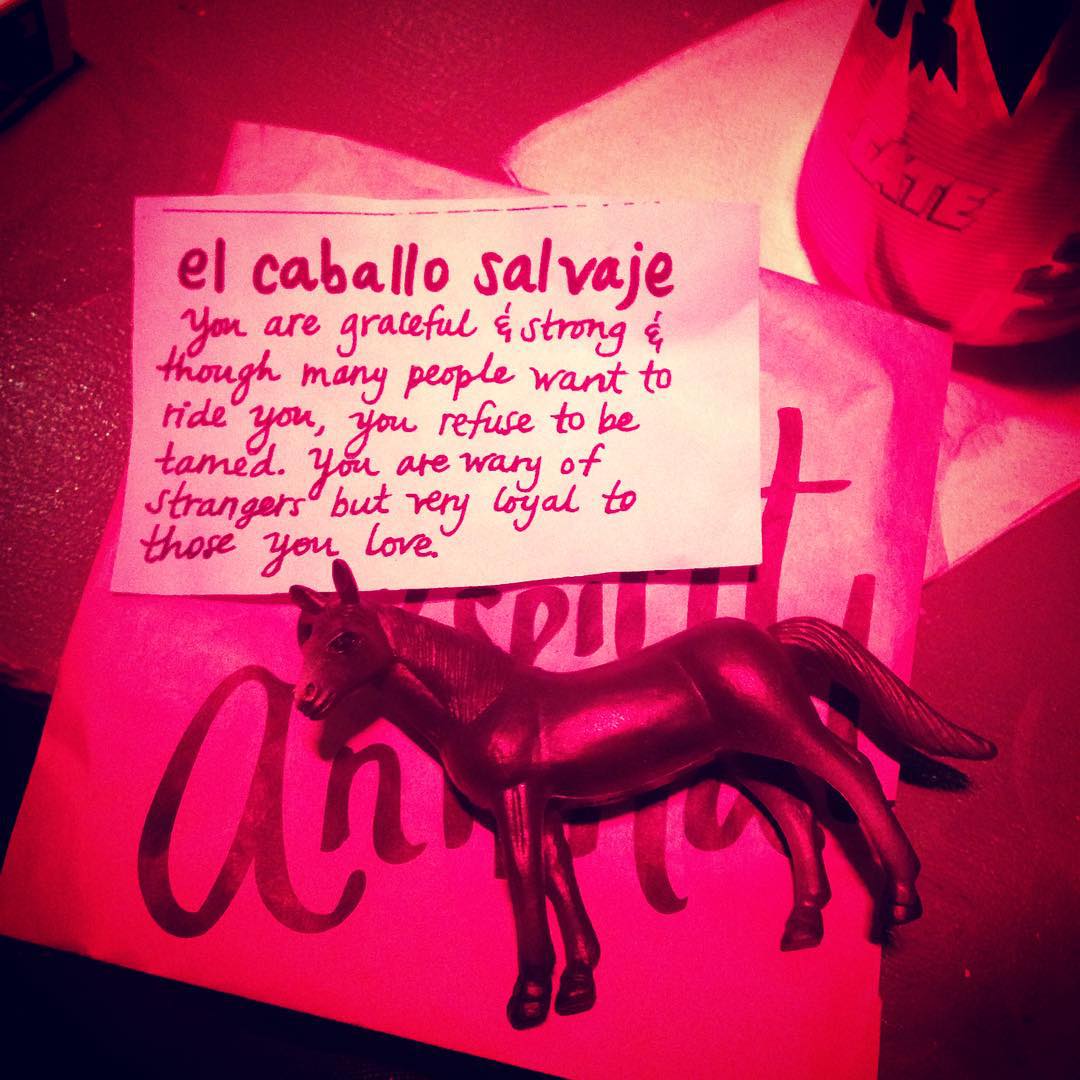 el caballo salvaje
You are graceful & strong &
though many people want to
ride you, you refuse to be
tamed. You are wary of
strangers but very loyal to
those you love.
spirit
Animal